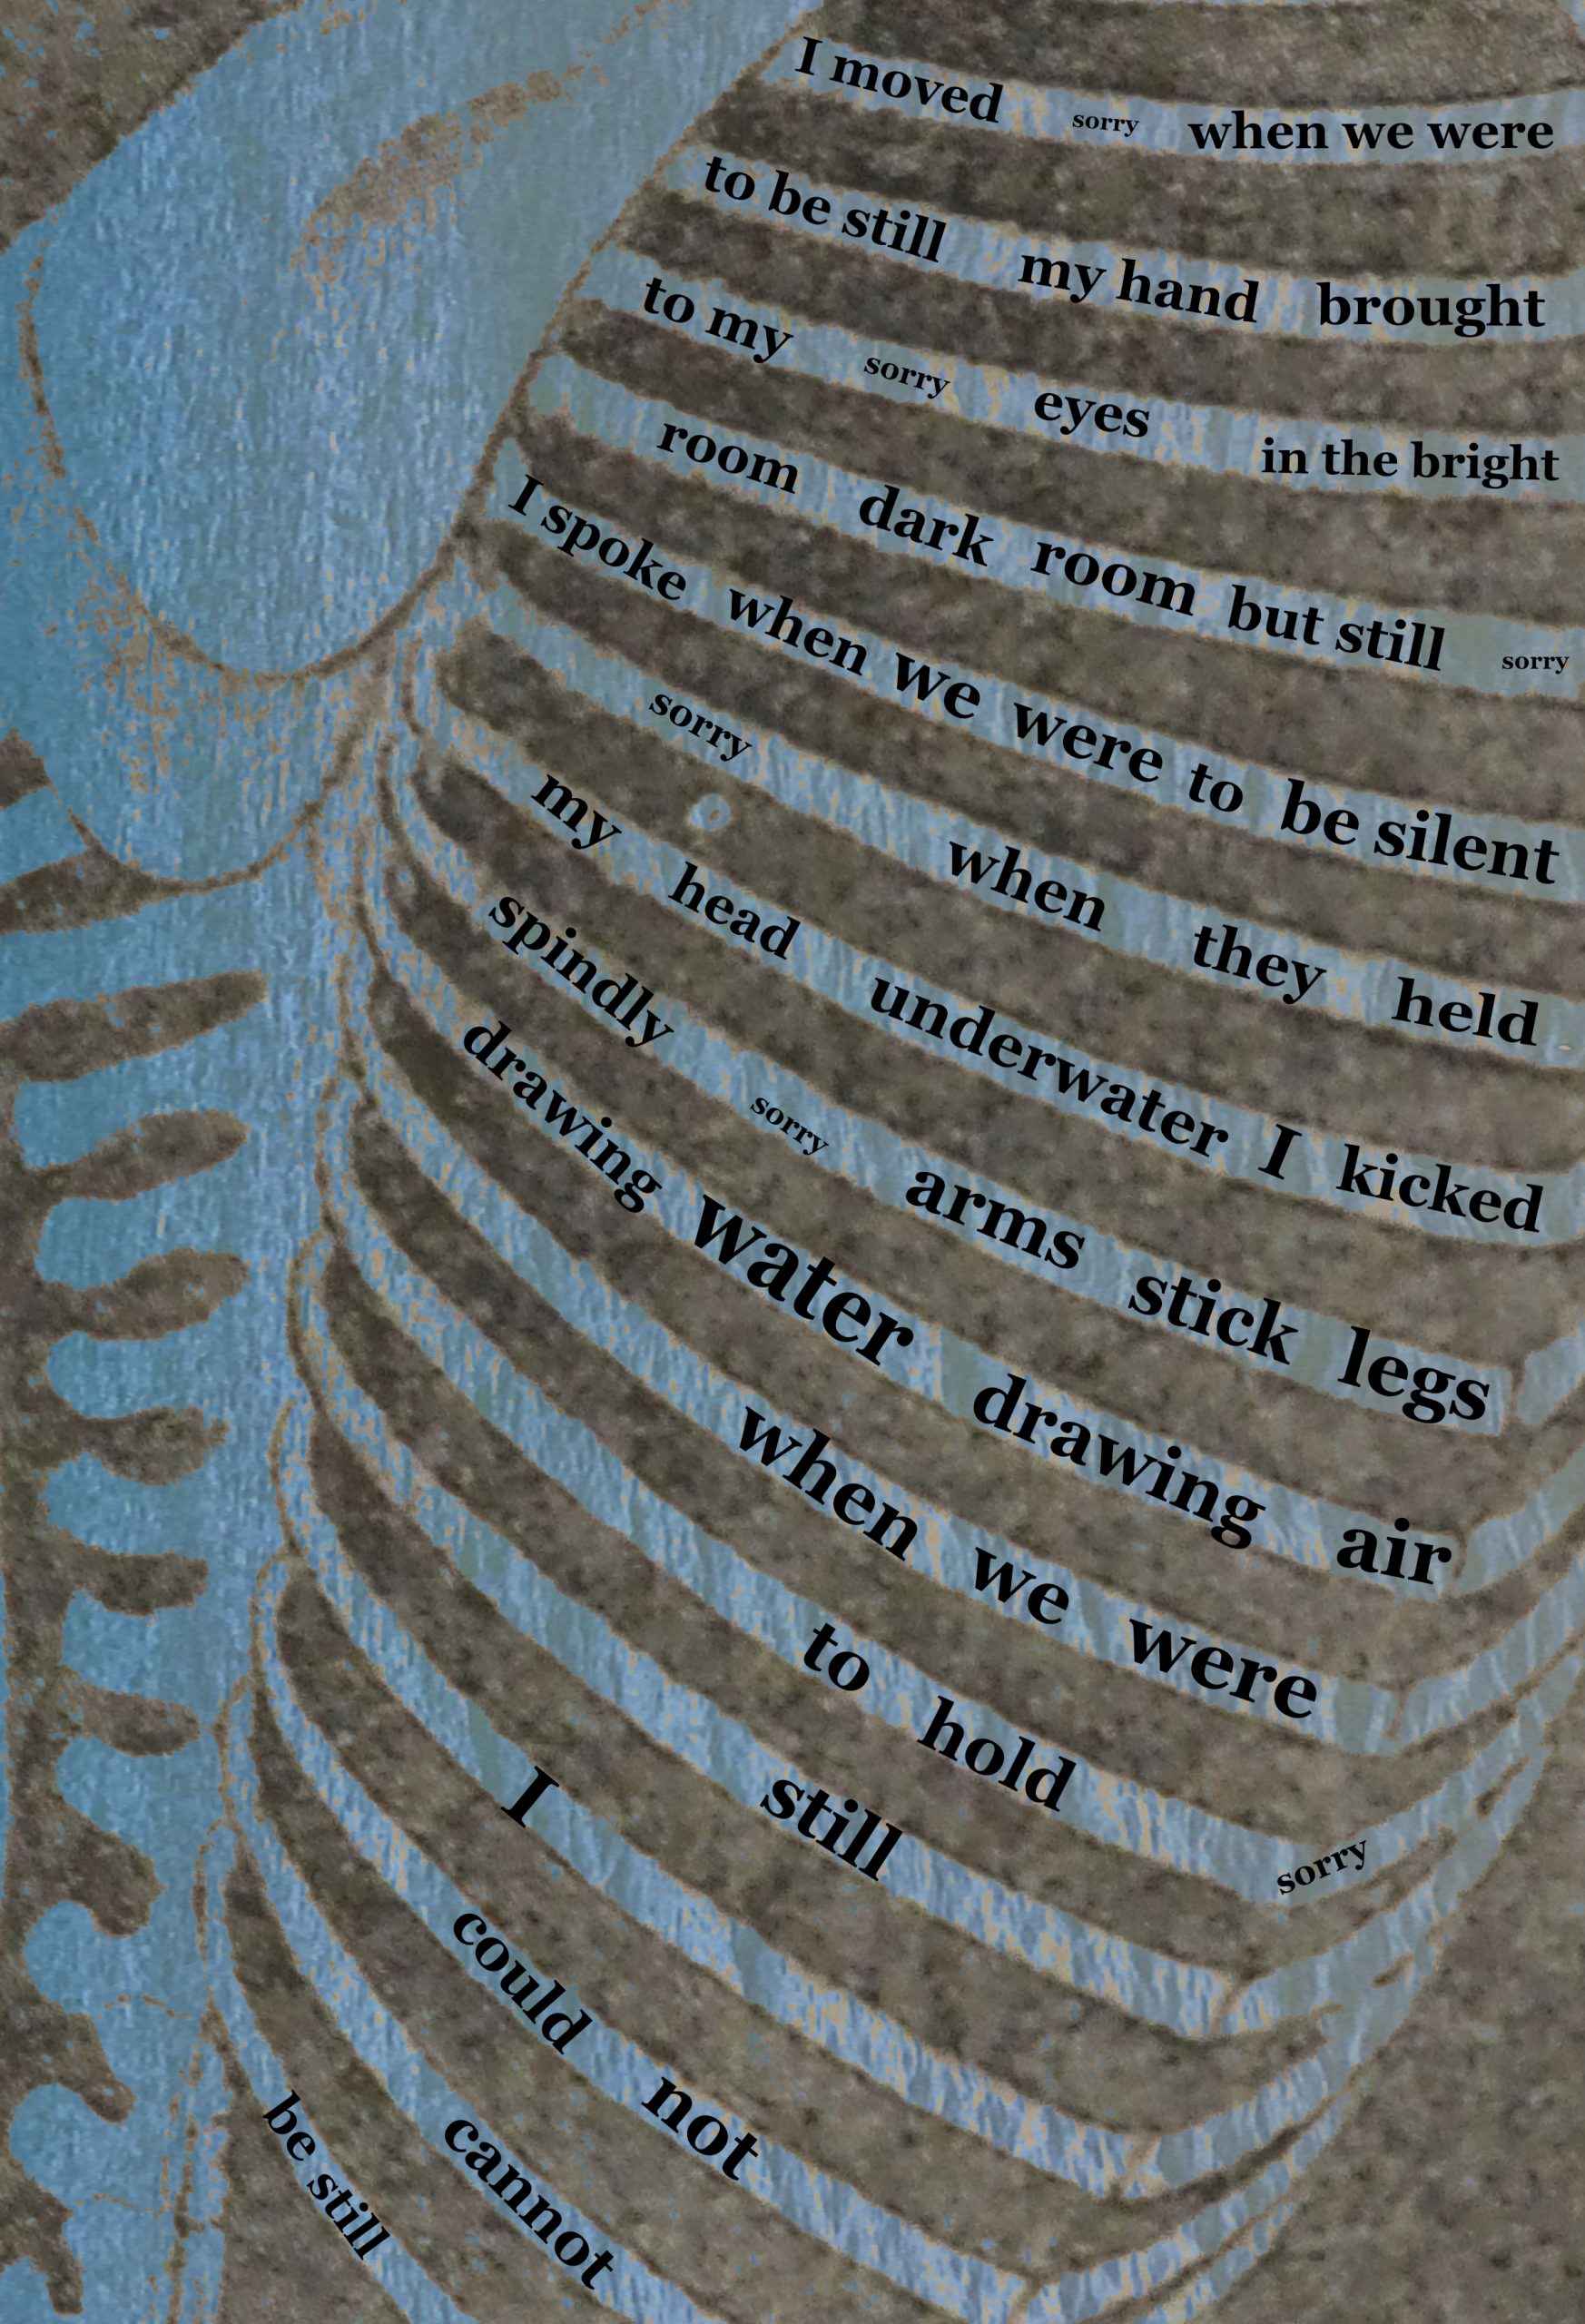 I moved sorry when we were
to be still my hand brought
to my sorry eyes in the bright
room dark room but still sorry
I spoke when we were to be silent
sorry when they held
my head underwater I kicked
spindly sorry arms stick legs
drawing water drawing air
when we were
to hold sorry
still
I
could not
cannot
be still